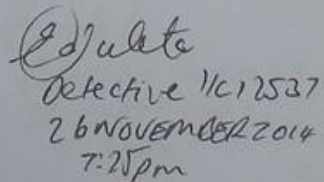 Detective 1/C 12537
26 NOVEMBER 2014
7:25pm